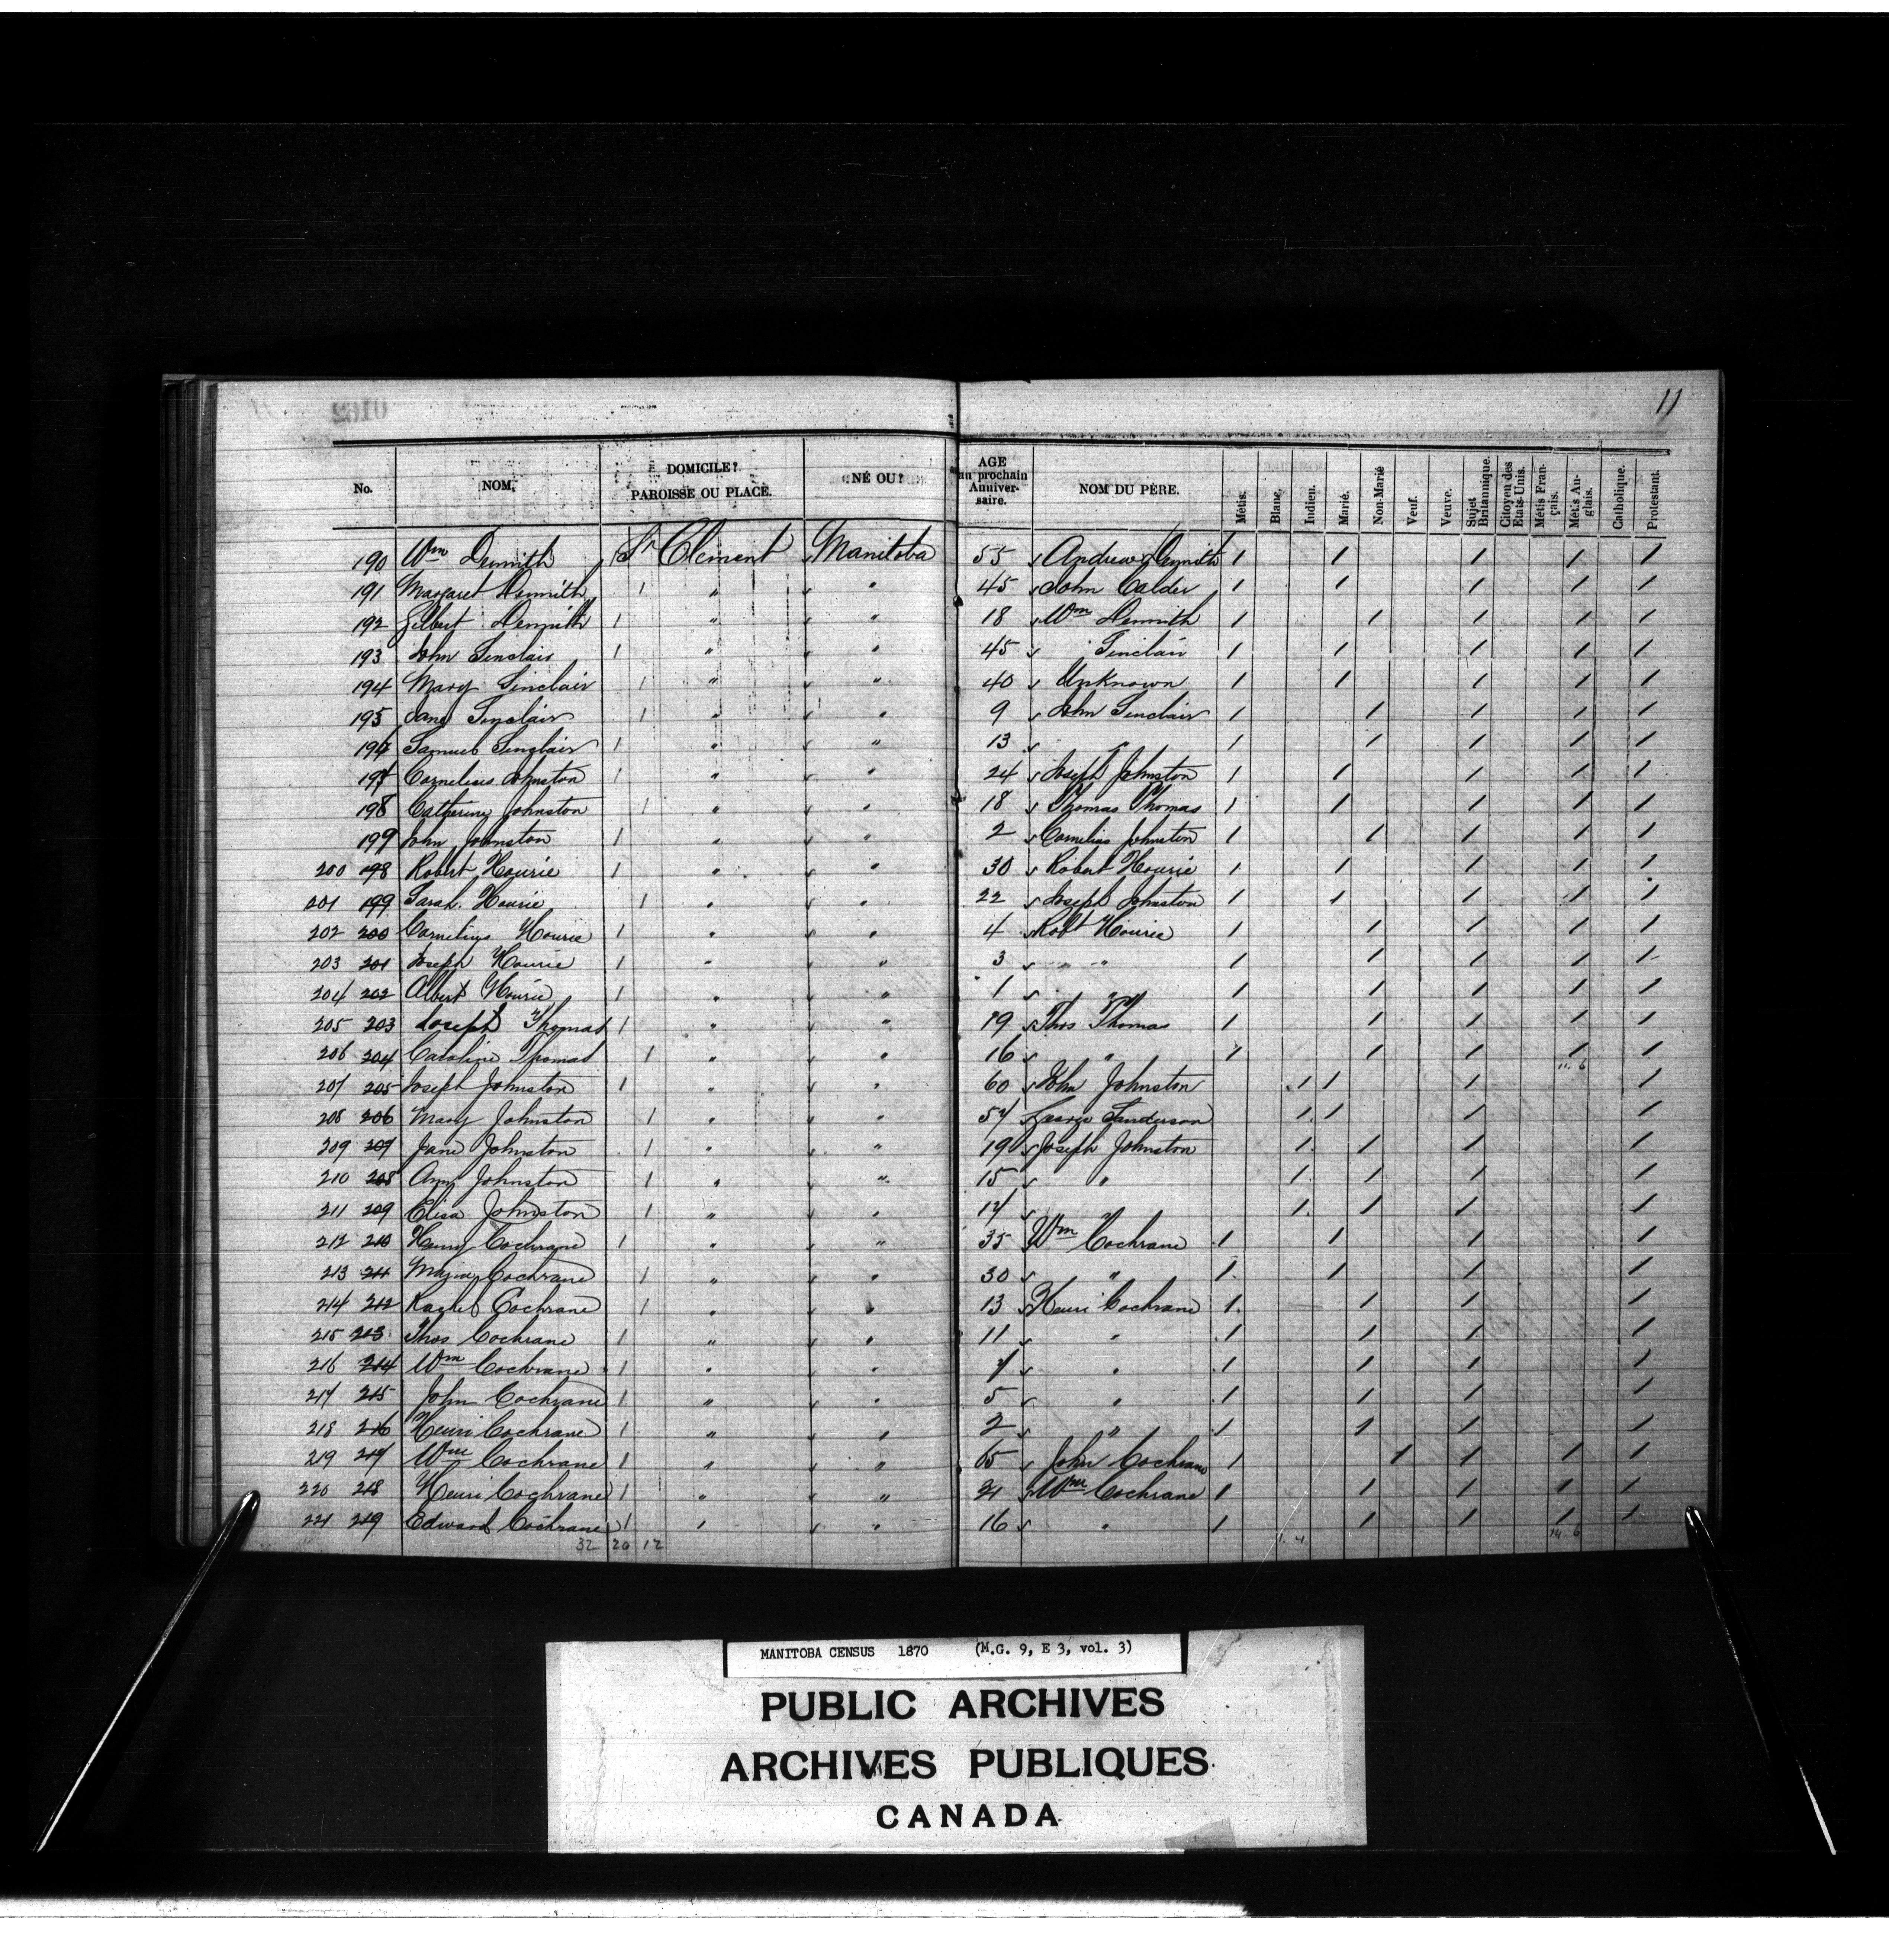 11
No. NOM. DOMICILE? PAROISSE OU PLACE. NÉ OU? AGE au prochain Anniversaire. NOM DU PÈRE. Métis. Blanc. Indien. Marié. Non-Marié Veuf. Veuve. Sujet Britannique. Citoyen des Etats-Unis. Métis Français. Métis Anglais. Catholique. Protestant.
190 Wm Demmith / St Clement Manitoba 55 Andrew Demmith / / / / /
191 Margaret Demmith / " " 45 John Calder / / / / /
192 Gilbert Demmith / " " 18 Wm Demmith / / / / /
193 John Sinclair / " " 45 Sinclair / / / / /
194 Mary Sinclair / " " 40 Unknown / / / / /
195 Jane Sinclair / " " 9 John Sinclair / / / / /
196 Samuel Sinclair / " " 13 " / / / / /
197 Cornelius Johnston / " " 24 Joseph Johnston / / / / /
198 Catherine Johnston / " " 18 Thomas Thomas / / / / /
199 John Johnston / " " 2 Cornelius Johnston / / / / /
200 198 Robert Hourie / " " 30 Robert Hourie / / / / /
201 199 Sarah Hourie / " " 22 Joseph Johnston / / / / /
202 200 Cornelius Hourie / " " 4 Robt Hourie / / / / /
203 201 Joseph Hourie / " " 3 " " / / / / /
204 202 Albert Hourie / " " 1 " / / / / /
205 203 Joseph Thomas / " " 19 Thos Thomas / / / / /
206 204 Caroline Thomas / " " 16 " / / / / /
11. 6
207 205 Joseph Johnston / " " 60 John Johnston / / / /
208 206 Mary Johnston / " " 57 George Sanderson / / / /
209 207 Jane Johnston / " " 19 Joseph Johnston / / / /
210 208 Ann Johnston / " " 15 " / / / /
211 209 Elisa Johnston / " " 14 " / / / /
212 210 Henry Cochrane / " " 35 Wm Cochrane / / / /
213 211 Cochrane / " " 30 " / / / /
214 212 Rachel Cochrane / " " 13 Henri Cochrane / / / /
215 213 Thos Cochrane / " " 11 " / / / /
216 214 Wm Cochrane / " " 7 " / / / /
217 215 John Cochrane / " " 5 " / / / /
218 216 Henri Cochrane / " " 2 " / / / /
219 217 Wm Cochrane / " " 65 John Cochrane / / / / /
220 218 Henri Cochrane / " " 21 Wm Cochrane / / / / /
221 219 Edward Cochrane / " " 16 " / / / / /
32 20 12 1. 4 14. 6
MANITOBA CENSUS 1870 (M.G. 9, E 3, vol. 3)
PUBLIC ARCHIVES
ARCHIVES PUBLIQUES
CANADA